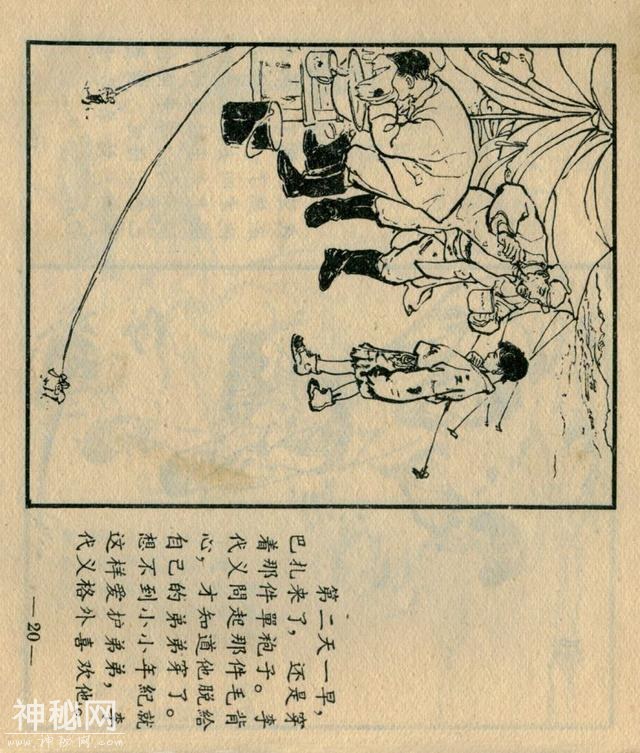 第二天一早，
巴扎来了，还是穿
着那件單袍子。李
代义問起那件毛背
心，才知道他脱給
自己的弟弟穿了。
想不到小小年紀就
这样爱护弟弟，李
代义格外喜欢他。
—20—
神秘网